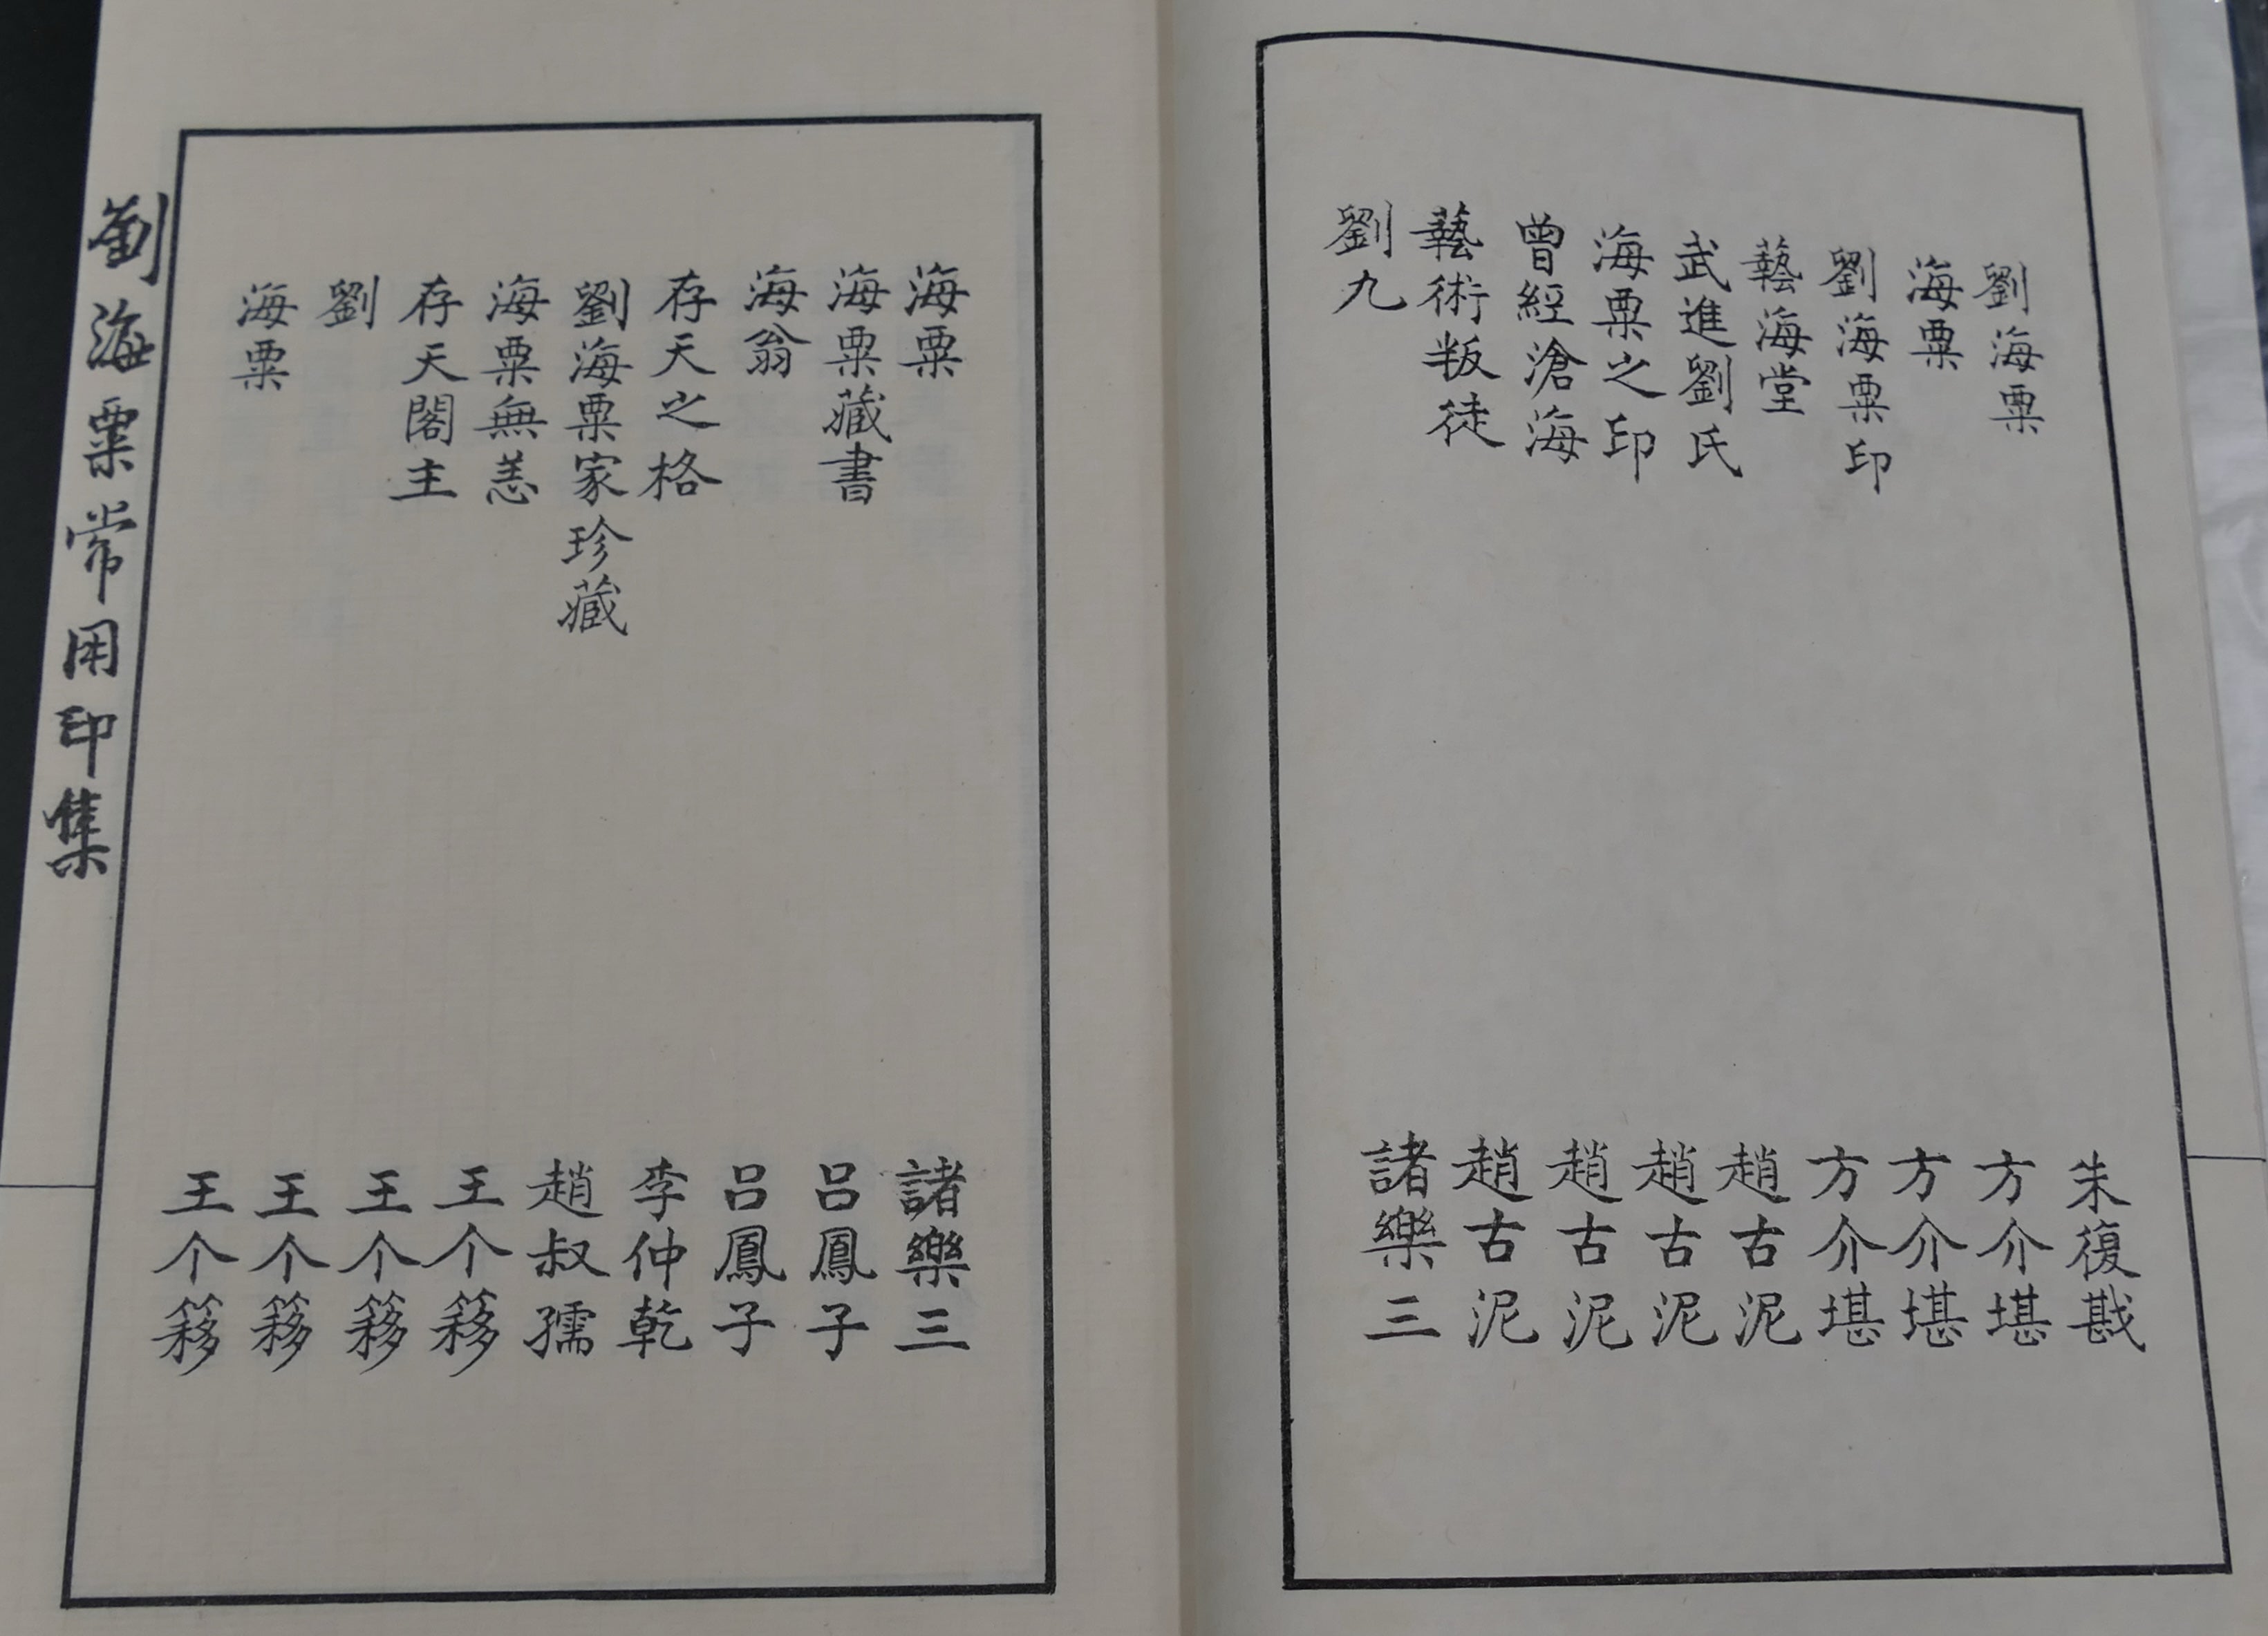 劉海粟
朱復戡
海粟
方介堪
劉海粟印
方介堪
藝海堂
方介堪
武進劉氏
趙古泥
海粟之印
趙古泥
曾經滄海
趙古泥
藝術叛徒
趙古泥
劉九
諸樂三
海粟
諸樂三
海粟藏書
呂鳳子
海翁
呂鳳子
存天之格
李仲乾
劉海粟家珍藏
趙叔孺
海粟無恙
王个簃
存天閣主
王个簃
劉
王个簃
海粟
王个簃
劉海粟常用印集